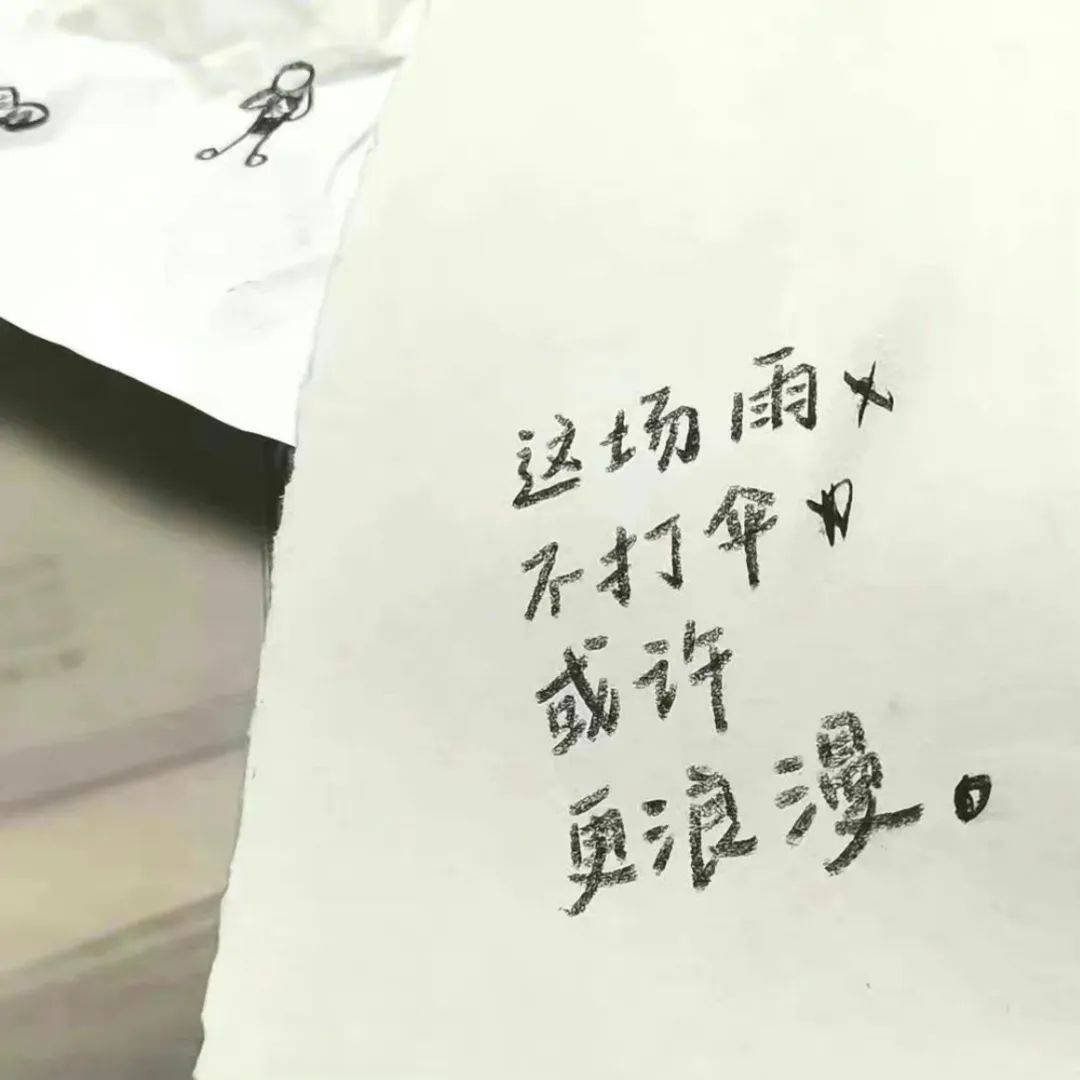 这场雨
不打伞
或许
更浪漫。